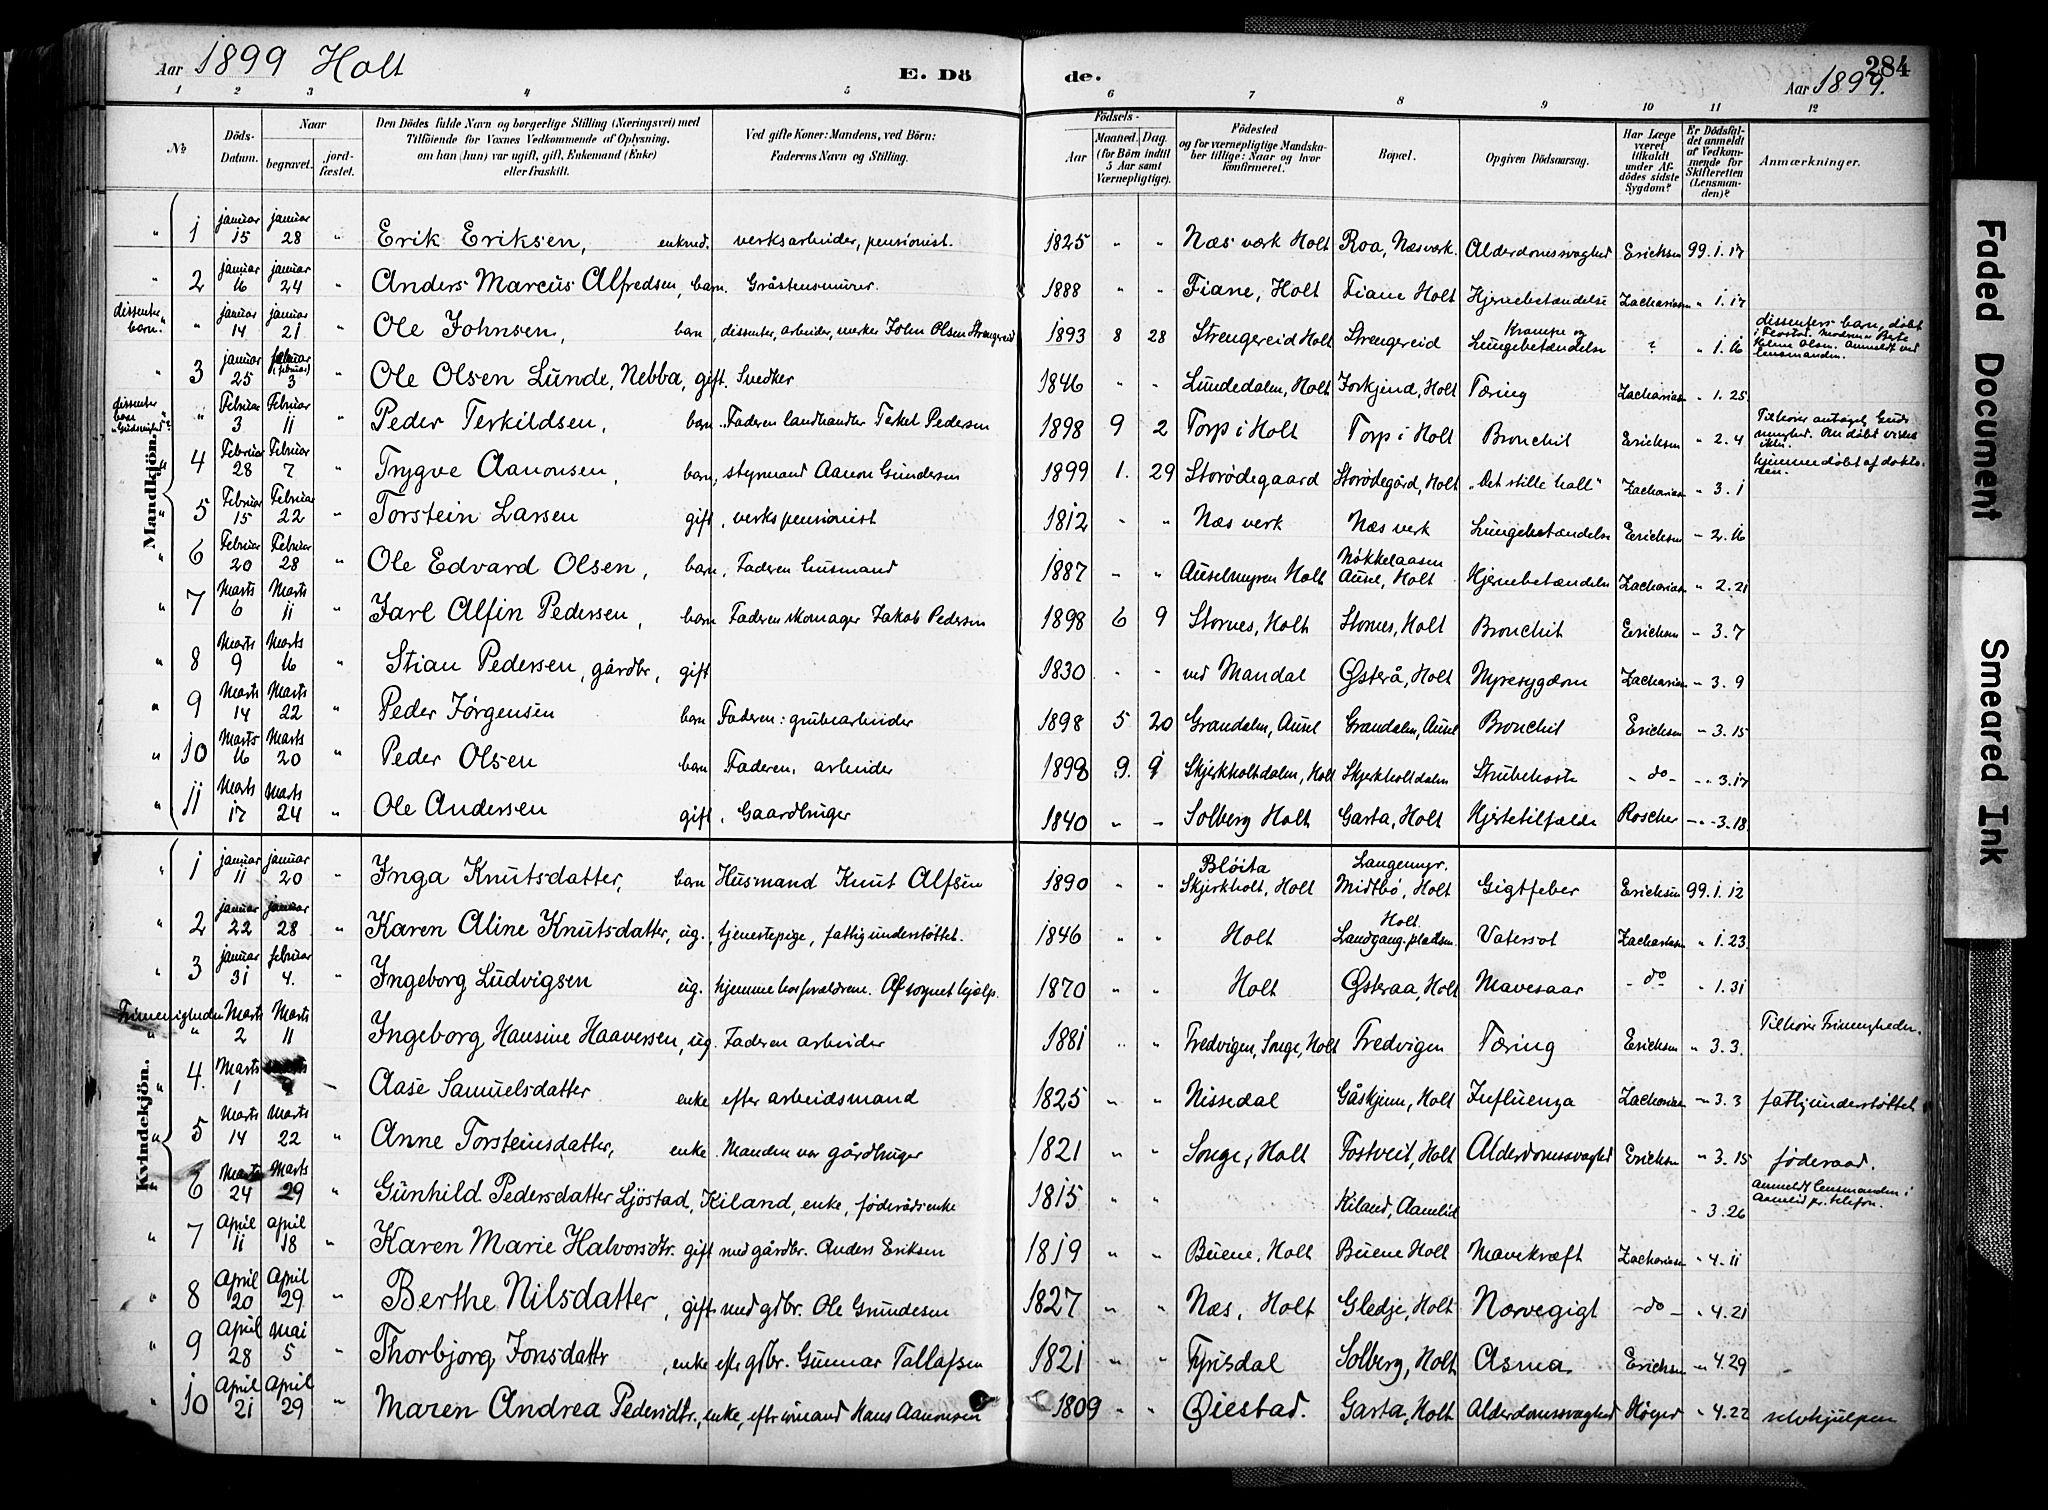 Aar 1899 Holt
E. Döde.
284
Aar 1899.
1 2 3 4 5 6 7 8 9 10 11 12
No
Döds-Datum.
Naar
begravet.
jord-fæstet.
Den Dödes fulde Navn og borgerlige Stilling (Næringsvei) med
Tilföiende for Voxnes Vedkommende af Oplysning,
om han (hun) var ugift, gift, Enkemand (Enke)
eller fraskilt.
Ved gifte Koner: Mandens, ved Börn:
Faderens Navn og Stilling.
Födsels-
Aar
Maaned. Dag.
(for Börn indtil
5 Aar samt
Værnepligtige).
Födested
og for værnepligtige Mandska-
ber tillige: Naar og hvor
konfirmeret.
Bopæl.
Opgiven Dödsaarsag.
Har Læge
været
tilkaldt
under Af-
dödes sidste
Sygdom?
Er Dödsfal-
det anmeldt
af Vedkom-
mende for
Skifteretten
(Lensman-
den)?
Anmærkninger.
Mandkjön.
" 1 januar 15 januar 28 " Erik Eriksen, enkmd. verksarbeider, pensionist. 1825 " " Næs værk Holt Roa, Næsværk. Alderdomssvaghed Ericksen 99.1.17
" 2 januar 16 januar 24 " Anders Marcus Alfredsen, barn. Gråstensmurer. 1888 " " Fiane, Holt Fiane Holt Hjernebetændelse Zachariasen " 1.17
dissenter barn. " januar 14 januar 21 " Ole Johnsen, barn, dissenter, arbeider, John Olsen Strengereid 1893 8 28 Strengereid Holt Strengereid Krampe og Lungebetændelse ? " 1.16 dissenters barn, døbt i Moderen Berte Olsen. Anmeldt ved lensmanden.
" 3 januar 25 februar 3 Ole Olsen Lunde, Nebba, gift. Snedker 1846 " " Lundedalen, Holt Forkjend, Holt Tæring Zachariasen " 1.25
dissenter barn " Februar 3 Februar 11 " Peder Terkildsen, barn. Faderen landhandler Terkel Pedersen 1898 9 2 Torp i Holt Torp i Holt Bronchit Ericksen " 2.4 Tilhører Guds menighed. Om døbt vides ikke.
4 Februar 28 Februar 7 " Trygve Aanonsen, barn, styrmand Aanon Gundersen 1899 1. 29 Storødegaard Storødegård, Holt "Det stille hall" Zachariasen " 3.1 hjemmedøbt af doktoren.
" 5 Februar 15 Februar 22 " Torstein Larsen gift, verkspensionist 1812 " " Næs verk Næs verk Lungebetændelse Ericksen " 2.16
" 6 Februar 20 Februar 28 " Ole Edvard Olsen, barn, Faderen husmand 1887 " " Auselmyren Holt Nøkkelaasen Ausel, Holt Hjernebetændelse Zachariasen " 2.21
" 7 Marts 6 Marts 11 " Jarl Alfin Pedersen, barn Faderen skomager Jakob Pedersen 1898 6 9 Stornes, Holt Stornes, Holt Bronchit Ericksen " 3.7
" 8 Marts 9 Marts 16 " Stian Pedersen, gårdbr, gift 1830 " " ved Mandal Østerå, Holt Nyresygdom Zachariasen " 3.9
" 9 Marts 14 Marts 22 " Peder Jørgensen barn Faderen: grubearbeider 1898 5 20 Grandalen, Ausel Grandalen, Ausel Bronchit Ericksen " 3.15
" 10 Marts 16 Marts 20 " Peder Olsen barn Faderen, arbeider 1898 9. 9 Skjerkholtdalen, Holt Skjerkholtdalen Strubehoste - do - " 3.17
" 11 Marts 17 Marts 24 " Ole Andersen gift, Gaardbruger 1840 " " Solberg Holt Garta, Holt Hjertetilfælde Roscher " 3.18.
Kvindekjön.
" 1 januar 11 januar 20 " Inga Knutsdatter, barn Husmand Knut Alfsen 1890 " " Bløita Skjerkholt, Holt Langemyr. Midtbø, Holt Gigtfeber Ericksen 99.1.12
" 2 januar 22 januar 28 " Karen Aline Knutsdatter, ug., tjenestepige, fattigunderstøttet. 1846 " " Holt Holt. Landgang.pladsen. Vatersot Zachariasen " 1.23.
" 3 januar 31 februar 4. " Ingeborg Ludvigsen ug. hjemme hos forældrene. Af sognet hjælp. 1870 " " Holt Østeraa, Holt Mavesaar - do " 1.31
Frimenigheden " Marts 2 Marts 11 " Ingeborg Hansine Haaversen, ug. Faderen arbeider 1881 " " Fredvigen, Songe, Holt Fredvigen Tæring Ericksen " 3.3. Tilhører Frimenigheden.
" 4. Marts 1 9 " Aase Samuelsdatter enke efter arbeidsmand 1825 " " Nissedal Gåskjenn, Holt Influenza Zachariasen " 3.3 fattigunderstøttet
" 5 Marts 14 Marts 22 " Anne Torsteinsdatter, enke Manden var gårdbruger 1821 " " Songe, Holt Fostveit, Holt Alderdomssvaghed Ericksen " 3.15 føderaad.
" 6 Marts 24 Marts 29 " Gunhild Pedersdatter Ljøstad, Kiland, enke, føderådsenke 1815 " " Kiland, Aamlid " 3.26 Anmeldt lensmanden i Aamlid pr. telefon.
" 7 April 11 April 18 " Karen Marie Halvorsdtr. gift med gårdbr. Anders Eriksen 1819 " " Buene, Holt Buene Holt Mavekræft Zachariasen " 4.11
" 8 April 20 April 29 " Berthe Nilsdatter, gift med gdbr. Ole Grundesen 1827 " " Næs, Holt Gledje, Holt Nervegigt - do - " 4.21
" 9 April 28 Mai 5 " Thorbjorg Jonsdatter, enke efter gdbr. Gunnar Tallafsen 1821 " " Fyrisdal Solberg, Holt Asma Ericksen " 4.29
" 10 April 21 April 29 " Maren Andrea Pedersdtr., enke, efter Hans Aanonsen 1809 " " Øiestad. Garta, Holt Alderdomssvaghed Høyer " 4.22 selvhjulpen
Faded Document
Smeared Ink